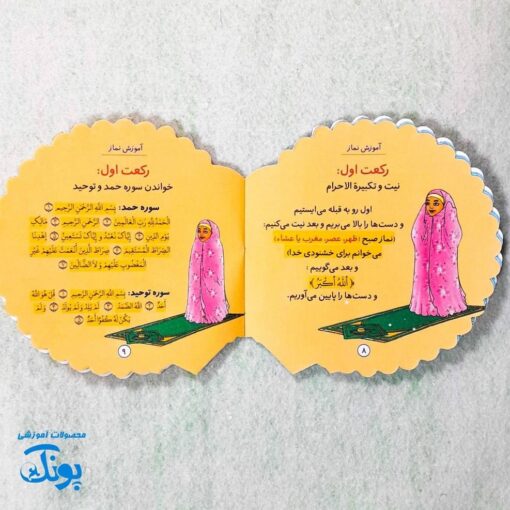 آموزش نماز
رکعت اول:
نیت و تکبیرة الاحرام
اول رو به قبله می‌ایستیم
و دست‌ها را بالا می‌بریم و بعد نیت می‌کنیم:
(نماز صبح (ظهر، عصر، مغرب یا عشاء)
می‌خوانم برای خشنودی خدا)
و بعد می‌گوییم:
﴿اَللهُ اَکْبَرُ﴾
و دست‌ها را پایین می‌آوریم.
۸
آموزش نماز
رکعت اول:
خواندن سوره حمد و توحید
سوره حمد: بِسْمِ اللَّهِ الرَّحْمَنِ الرَّحِیمِ
الْحَمْدُ لِلَّهِ رَبِّ الْعَالَمِینَ الرَّحْمَنِ الرَّحِیمِ مَالِکِ
یَوْمِ الدِّینِ إِیَّاکَ نَعْبُدُ وَ إِیَّاکَ نَسْتَعِینُ اهْدِنَا
الصِّرَاطَ الْمُسْتَقِیمَ صِرَاطَ الَّذِینَ أَنْعَمْتَ عَلَیْهِمْ غَیْرِ
الْمَغْضُوبِ عَلَیْهِمْ وَ لَا الضَّالِّینَ
سوره توحید: بِسْمِ اللَّهِ الرَّحْمَنِ الرَّحِیمِ قُلْ هُوَ اللَّهُ
أَحَدٌ اللَّهُ الصَّمَدُ لَمْ یَلِدْ وَ لَمْ یُولَدْ وَ لَمْ
یَکُنْ لَهُ کُفُوًا أَحَدٌ
۹
محصولات آموزشی
پونک